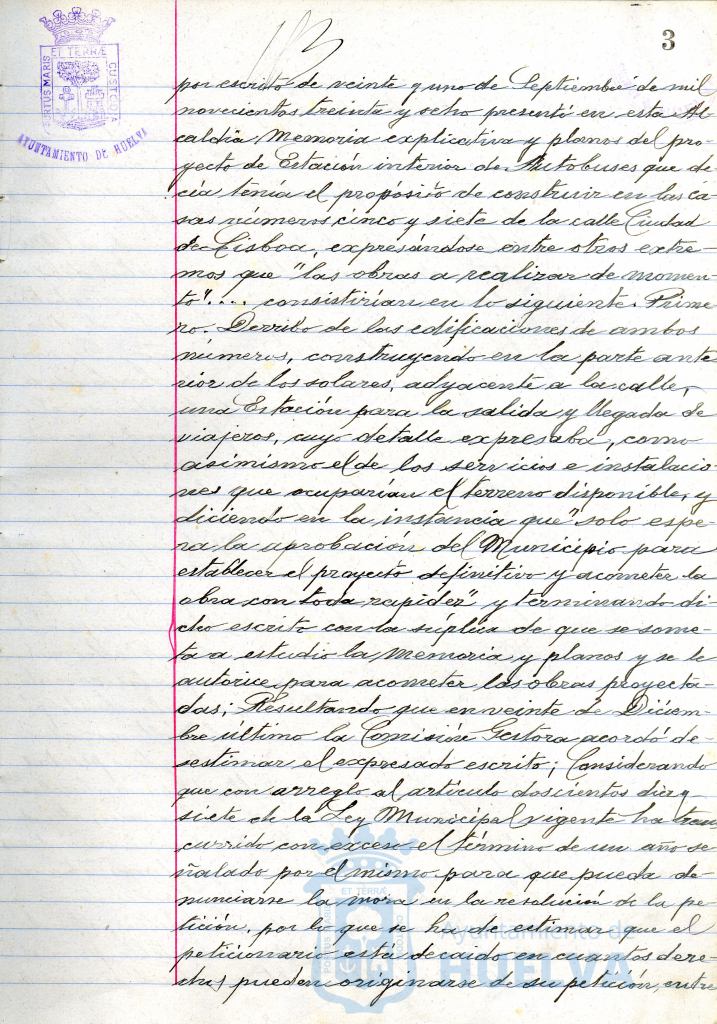 3
PORTUS MARIS ET TERRÆ CUSTODIA
AYUNTAMIENTO DE HUELVA
por escrito de veinte y uno de Septiembre de mil
novecientos treinta y ocho presentó en esta Al
caldía Memoria explicativa y planos del pro-
yecto de Estación interior de Autobuses que de-
cía tenía el propósito de construir en las ca
sas números cinco y siete de la calle Ciudad
de Lisboa, expresándose entre otros extre-
mos que "las obras a realizar de momen-
to".... consistirían en lo siguiente. Prime-
ro. Derribo de las edificaciones de ambos
números, construyendo en la parte ante
rior de los solares, adyacente a la calle,
una Estación para la salida y llegada de
viajeros, cuyo detalle expresaba, como
asimismo el de los servicios e instalacio-
nes que ocuparían el terreno disponible, y
diciendo en la instancia que "solo espe-
ra la aprobación del Municipio para
establecer el proyecto definitivo y acometer la
obra con toda rapidez" y terminando di-
cho escrito con la súplica de que se some-
ta a estudio la Memoria y planos y se le
autorice para acometer las obras proyecta-
das; Resultando que en veinte de Diciem-
bre último la Comisión Gestora acordó de-
sestimar el expresado escrito; Considerando
que con arreglo al artículo doscientos diez y
siete de la Ley Municipal vigente ha trans
currido con exceso el término de un año se
ñalado por el mismo para que pueda de-
nunciarse la mora en la resolución de la pe-
tición, por lo que se ha de estimar que el
peticionario está decaido en cuantos dere-
chos pueden originarse de su petición, entre
PORTUS MARIS ET TERRÆ CUSTODIA
Ayuntamiento de
HUELVA